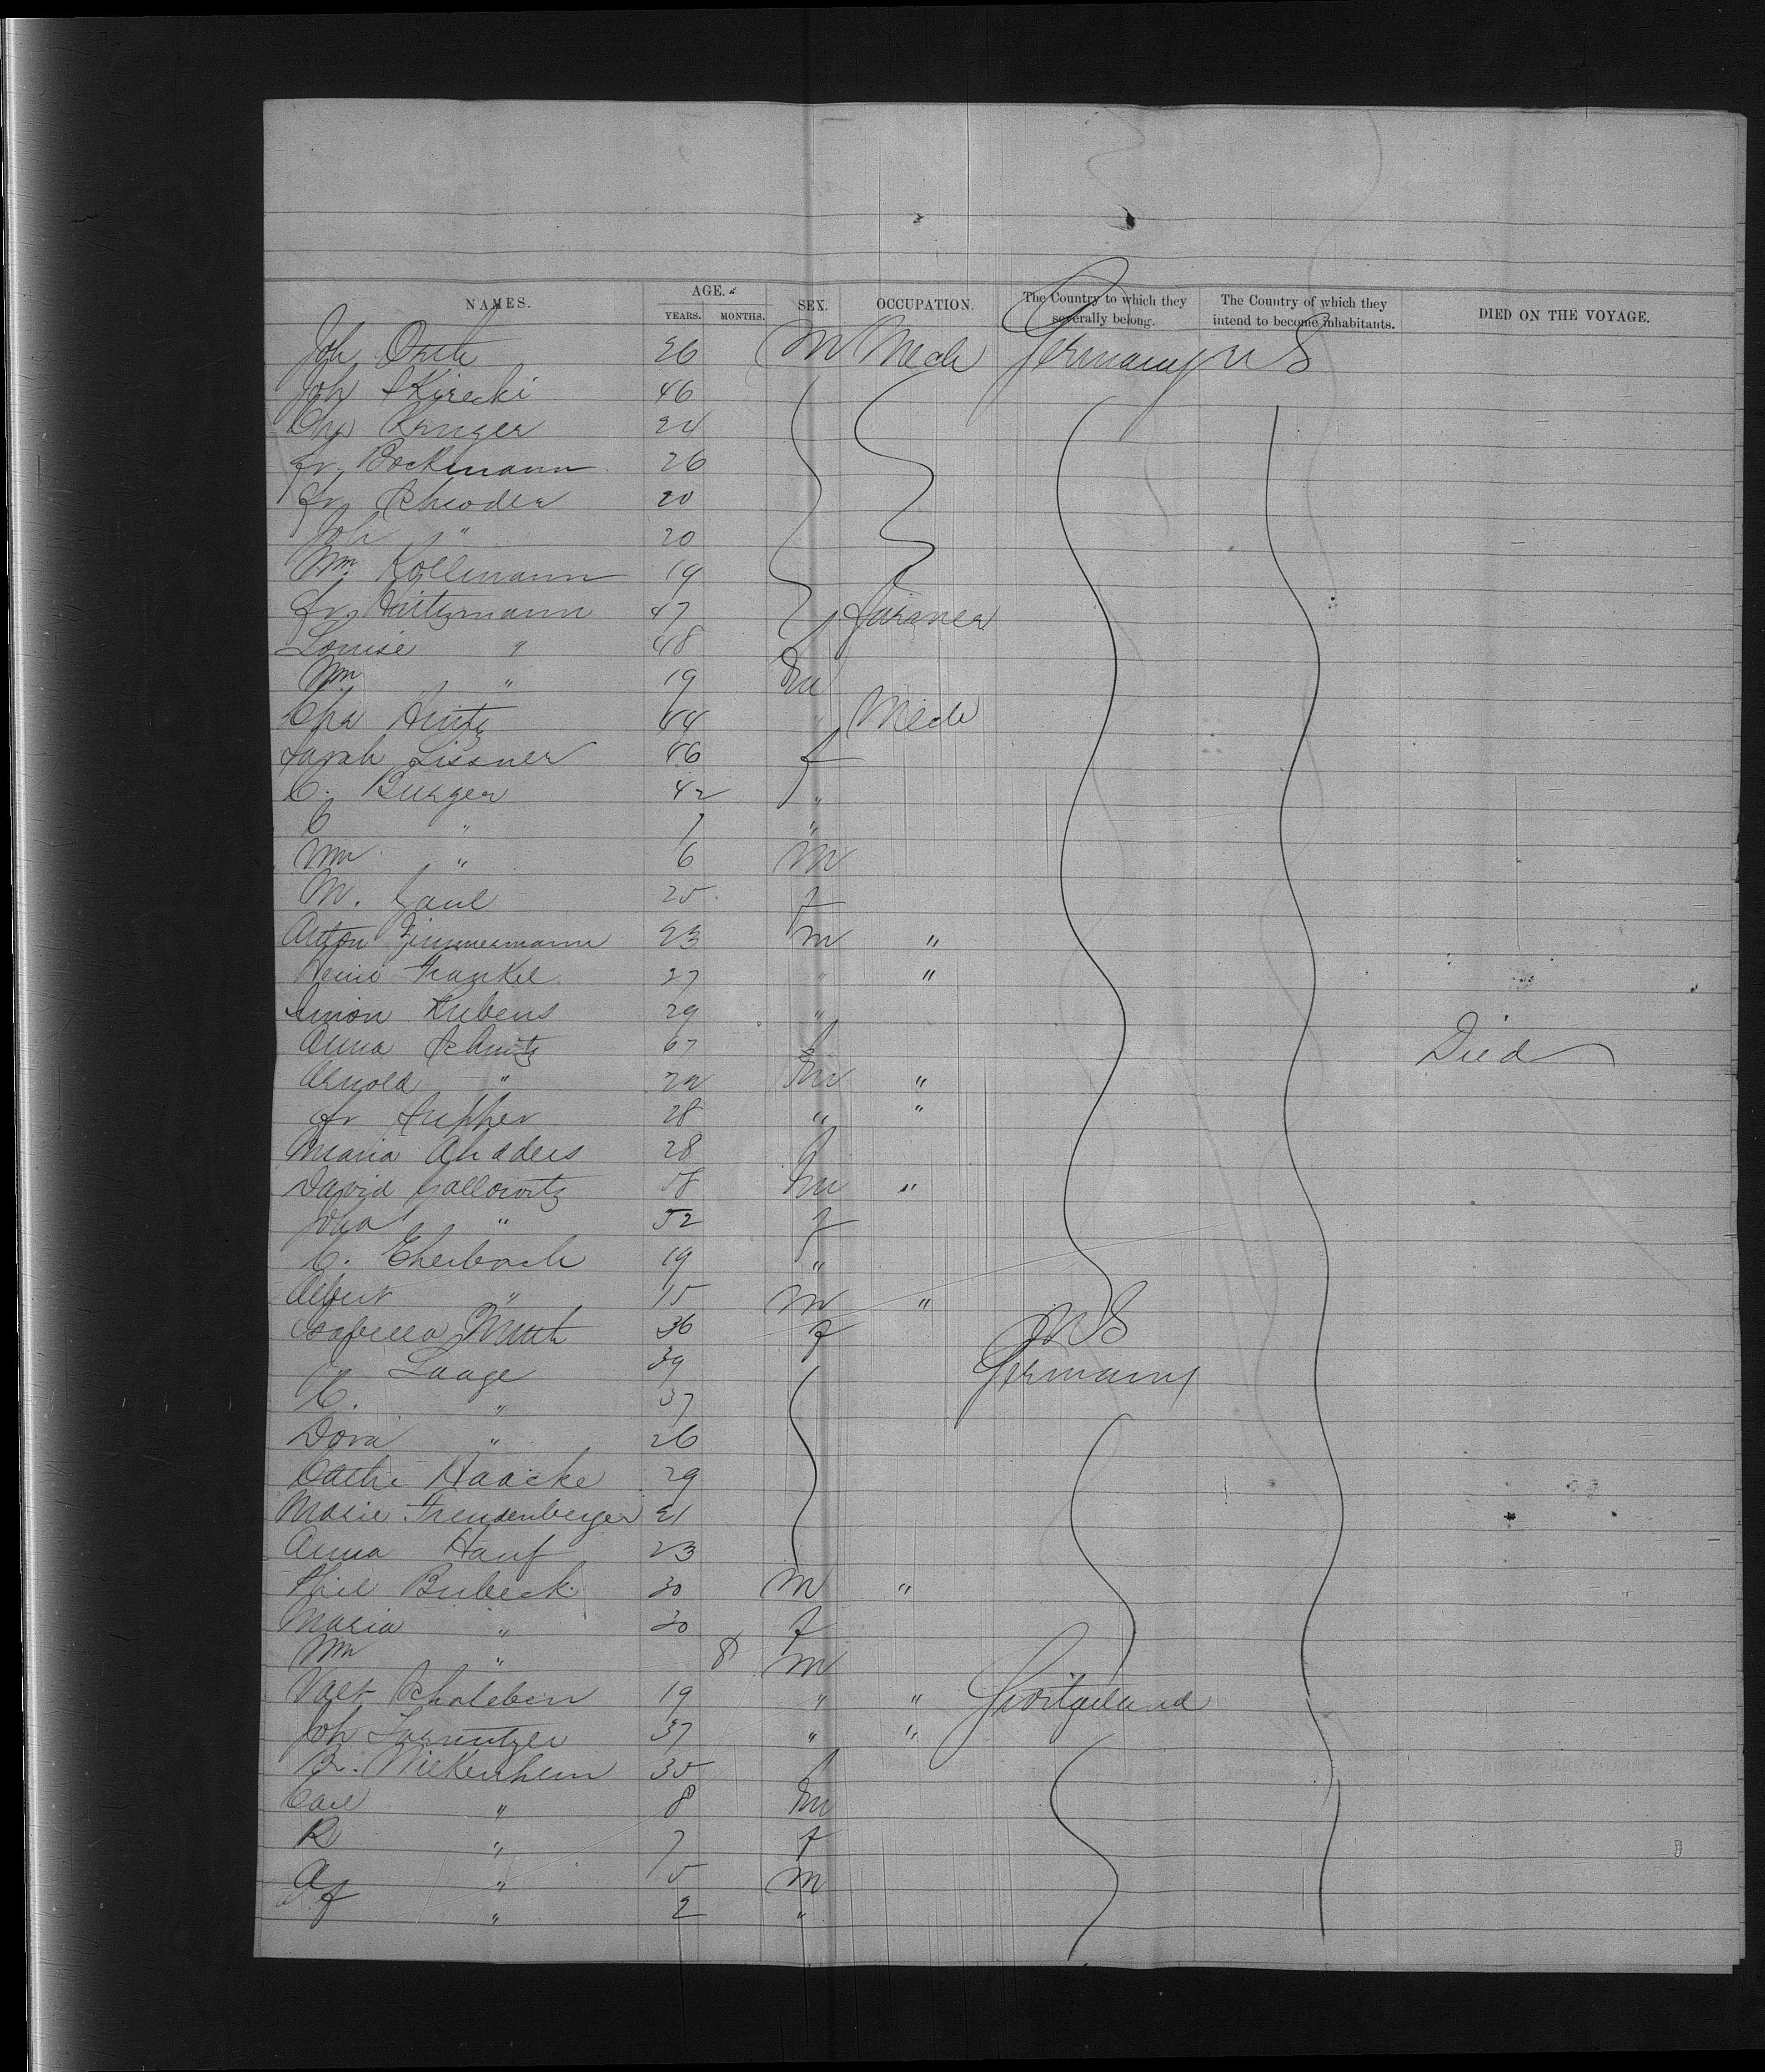 NAMES. AGE. YEARS. MONTHS. SEX. OCCUPATION. The Country to which they severally belong. The Country of which they intend to become inhabitants. DIED ON THE VOYAGE.
Joh 26 M Mech Germany U S
Joh Skirecki 46
Chr Kruger 24
Fr Bockmann 26
Fr Schroder 20
Joh " 20
Wm Kollmann 19
Fr Witzmann 47 Farmer
Louise " 48 f
Wm " 19 m
Cha Hintz 44 " Mech
Sarah Lissner 46 f
C. Burger 42 "
C " 7 "
Wm " 6 M
M. Gaul 25 f
Anton Zimmermann 23 m "
Frankel 27 " "
Simon Rubens 29 "
Anna Schmitz 67 f Died
Arnold " 22 m "
Fr 28 " "
Maria Ahaders 28 f
David Gallowitz 58 m "
Joha " 52 f
C. Eherbach 19 "
Albert " 15 M "
Isabella 36 f U S
Laage 39 Germany
C. " 37
Dora " 26
Cathi Haacke 29
Marie Freudenberger 21
Anna Hauf 23
Phil Bubeck 30 M "
Maria " 30 f
Wm " 8 M
Schaleben 19 " " Switzerland
Joh 37 " "
Br. Wiekenheim 35 f
Carl " 8 m
R " 7 f
A " 5 M
" 2 "